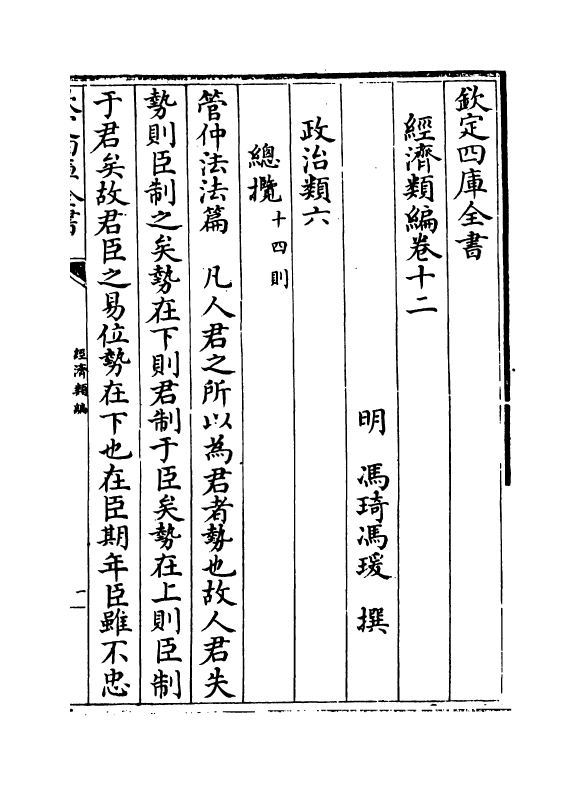 欽定四庫全書
經濟類編卷十二
明 馮琦馮瑗 撰
政治類六
總攬十四則
管仲法法篇 凡人君之所以為君者勢也故人君失
勢則臣制之矣勢在下則君制于臣矣勢在上則臣制
于君矣故君臣之易位勢在下也在臣期年臣雖不忠
經濟類編